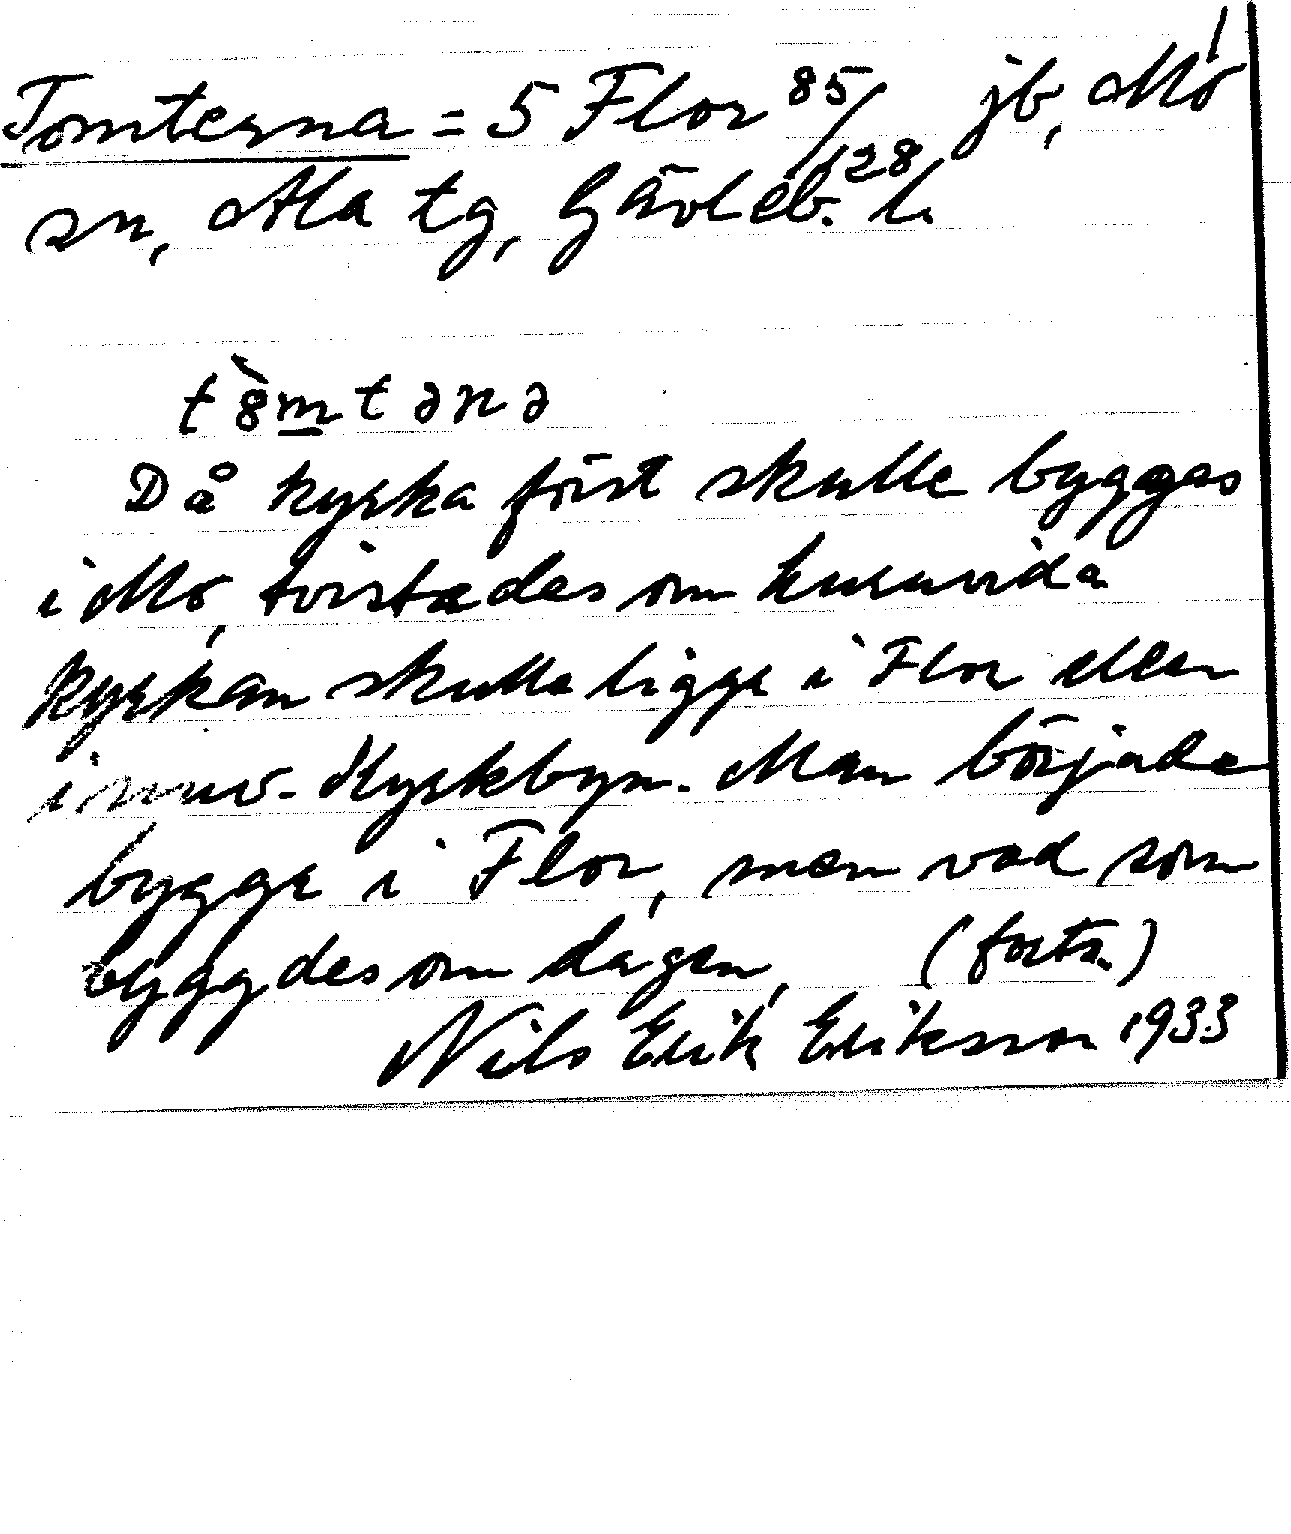 Tomterna = 5 Flor 85/128 jb, Mo
sn, Ala tg, Gävleb. l.
t8̀mtənə
Då kyrka först skulle byggas
i Mo, tvistades om huruvida
kyrkan skulle ligga i Flor eller
i nuv. Kyrkbyn. Man började
bygga i Flor, men vad som
byggdes om dagen, (forts.)
Nils Erik Eriksson 1933